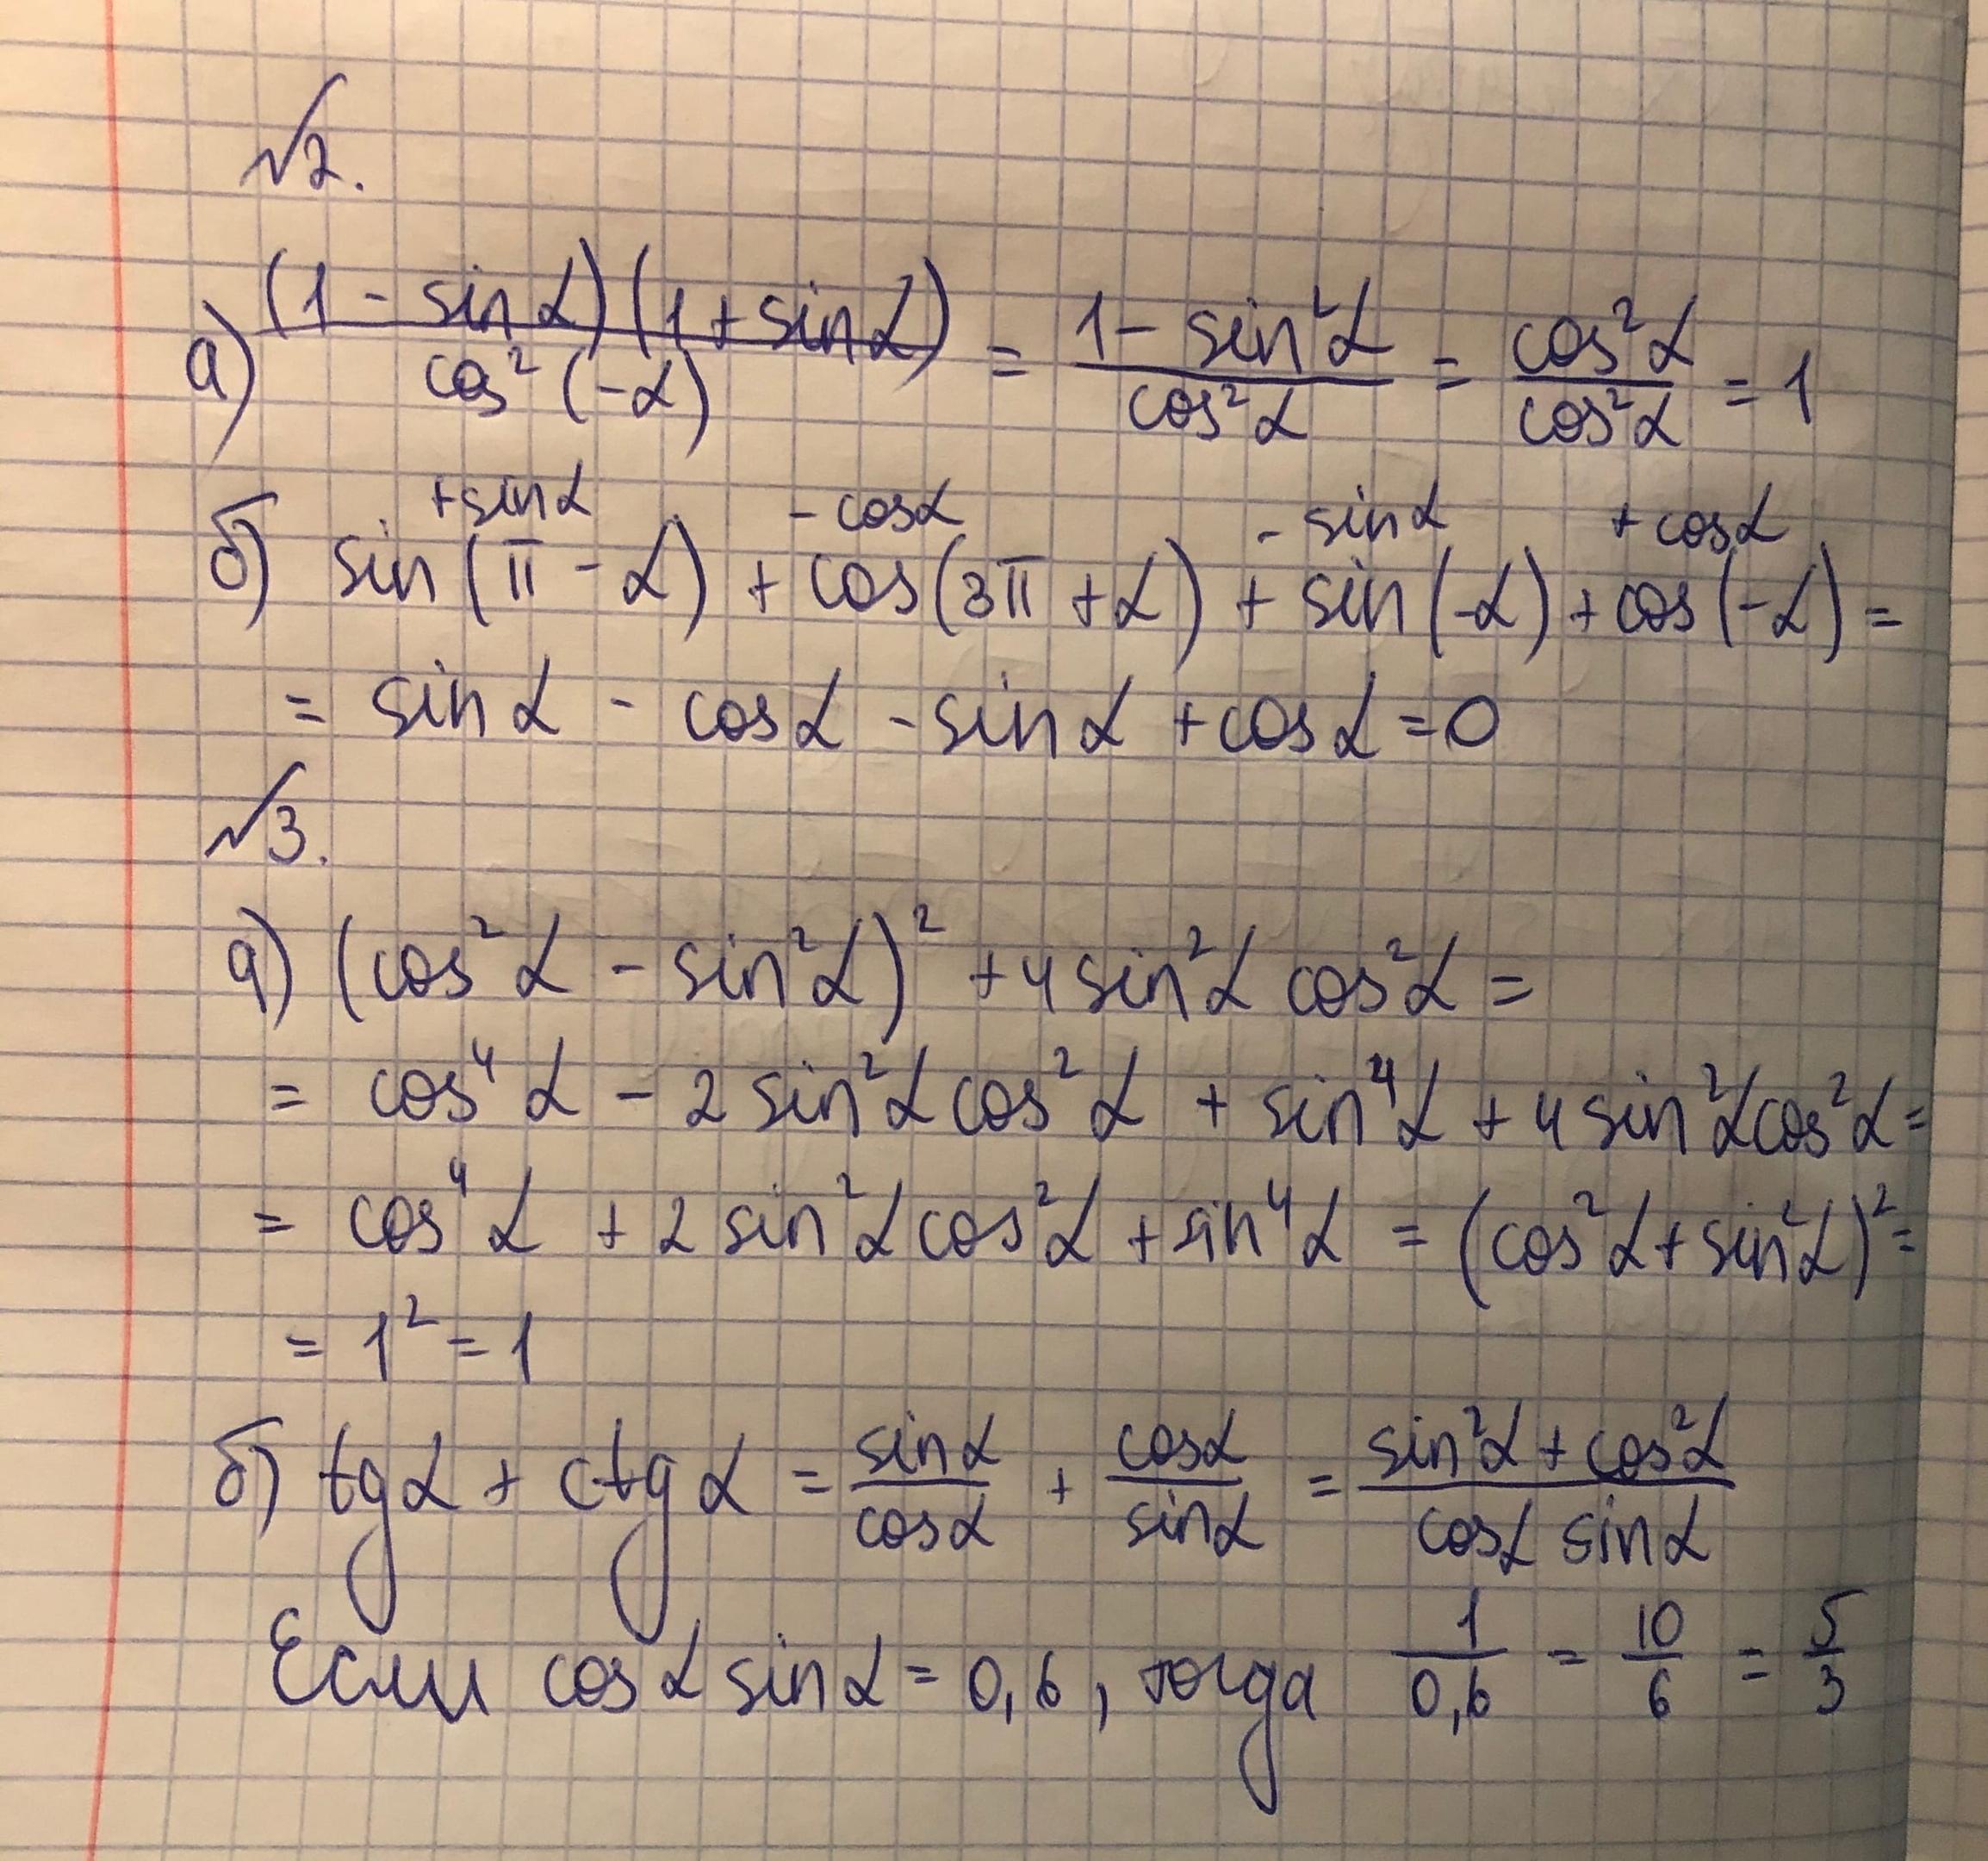 №2.
а) (1 - sin α)(1 + sin α) / cos² (-α) = 1 - sin²α / cos²α = cos²α / cos²α = 1
+sin α - cos α - sin α + cos α
б) sin (π - α) + cos (3π + α) + sin (-α) + cos (-α) =
= sin α - cos α - sin α + cos α = 0
№3.
а) (cos²α - sin²α)² + 4 sin²α cos²α =
= cos⁴α - 2 sin²α cos²α + sin⁴α + 4 sin²α cos²α =
= cos⁴α + 2 sin²α cos²α + sin⁴α = (cos²α + sin²α)² =
= 1² = 1
б) tg α + ctg α = sin α / cos α + cos α / sin α = sin²α + cos²α / cos α sin α
Если cos α sin α = 0,6, тогда 1 / 0,6 = 10 / 6 = 5 / 3